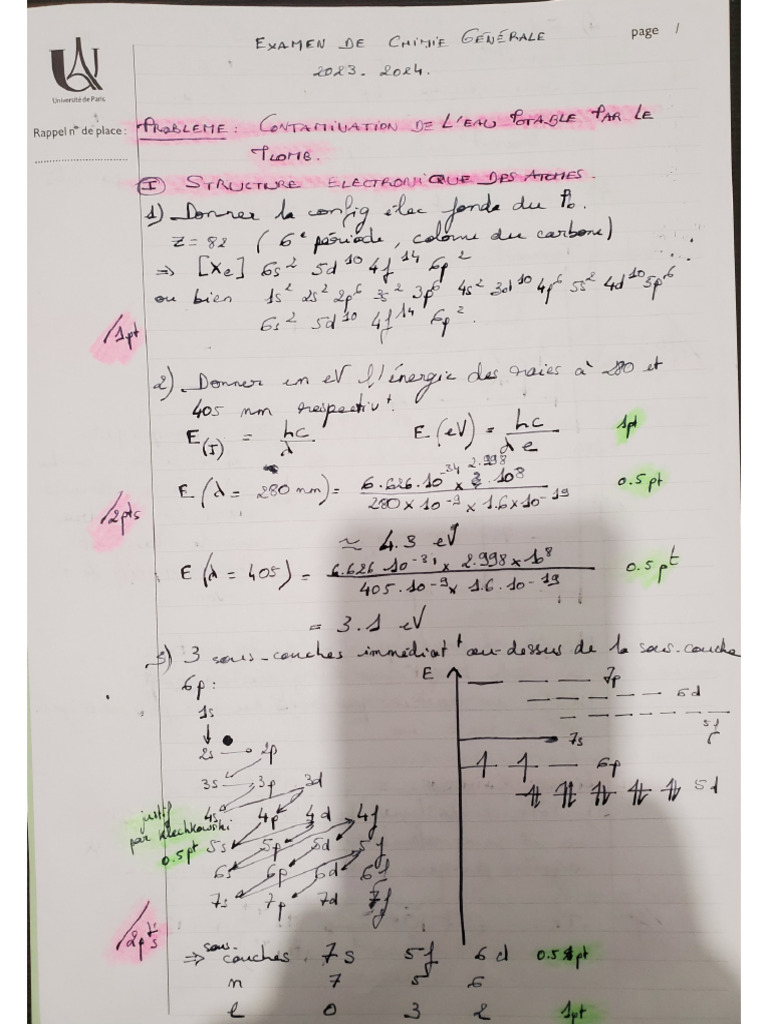 EXAMEN DE CHIMIE GÉNÉRALE
page 1
2023-2024.
Université de Paris
Rappel n° de place :
PROBLEME : CONTAMINATION DE L'EAU POTABLE PAR LE
PLOMB.
I STRUCTURE ELECTRONIQUE DES ATOMES.
1) Donner la config élec fonda du Pb.
Z = 82 ( 6e période, colonne du carbone)
⇒ [Xe] 6s² 5d¹⁰ 4f¹⁴ 6p²
ou bien 1s² 2s² 2p⁶ 3s² 3p⁶ 4s² 3d¹⁰ 4p⁶ 5s² 4d¹⁰ 5p⁶
6s² 5d¹⁰ 4f¹⁴ 6p².
/1pt
2) Donner en eV l'énergie des raies à 280 et
405 nm respectivt.
E(J) = hc/λ E(eV) = hc/λe 1pt
E(λ = 280 nm) = 6.626.10⁻³⁴ × 2.998.10⁸ / 280×10⁻⁹ × 1.6×10⁻¹⁹ 0.5pt
/2pts
≃ 4.3 eV
E(λ = 405) = 6.626 10⁻³⁴ × 2.998 × 10⁸ / 405.10⁻⁹ × 1.6.10⁻¹⁹ 0.5pt
= 3.1 eV
3) 3 sous-couches immédiatt au-dessus de la sous-couche
6p :
E 7p
6d
5f
7s
6p
5d
1s
2s 2p
3s 3p 3d
4s 4p 4d 4f
5s 5p 5d 5f
6s 6p 6d 6f
7s 7p 7d 7f
justif
par Klechkowski
0.5pt
/2pts
⇒ sous-couches 7s 5f 6d 0.5pt
n 7 5 6
l 0 3 2 1pt